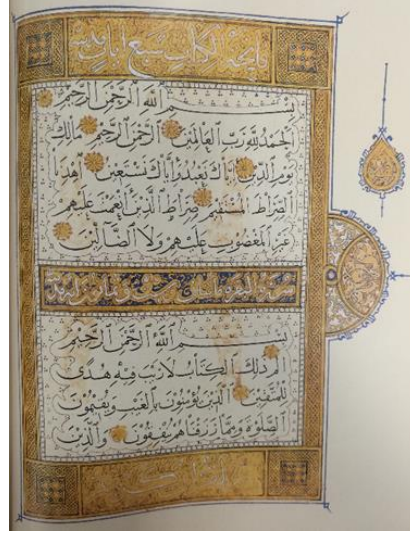 فاتحة الكتاب سبع ايات
بِسْمِ ٱللَّهِ ٱلرَّحْمَٰنِ ٱلرَّحِيمِ
اَلْحَمْدُ لِلَّهِ رَبِّ ٱلْعَالَمِينَ ٱلرَّحْمَٰنِ ٱلرَّحِيمِ مَالِكِ
يَوْمِ ٱلدِّينِ اِيَّاكَ نَعْبُدُ وَاِيَّاكَ نَسْتَعِينُ اِهْدِنَا
ٱلصِّرَاطَ ٱلْمُسْتَقِيمَ صِرَاطَ ٱلَّذِينَ أَنْعَمْتَ عَلَيْهِمْ
غَيْرِ ٱلْمَغْضُوبِ عَلَيْهِمْ وَلَا ٱلضَّالِّينَ
سورة البقرة
بِسْمِ ٱللَّهِ ٱلرَّحْمَٰنِ ٱلرَّحِيمِ
الم ذَٰلِكَ ٱلْكِتَابُ لَا رَيْبَ فِيهِ هُدًى
لِلْمُتَّقِينَ ٱلَّذِينَ يُؤْمِنُونَ بِٱلْغَيْبِ وَيُقِيمُونَ
ٱلصَّلَوٰةَ وَمِمَّا رَزَقْنَاهُمْ يُنْفِقُونَ وَٱلَّذِينَ